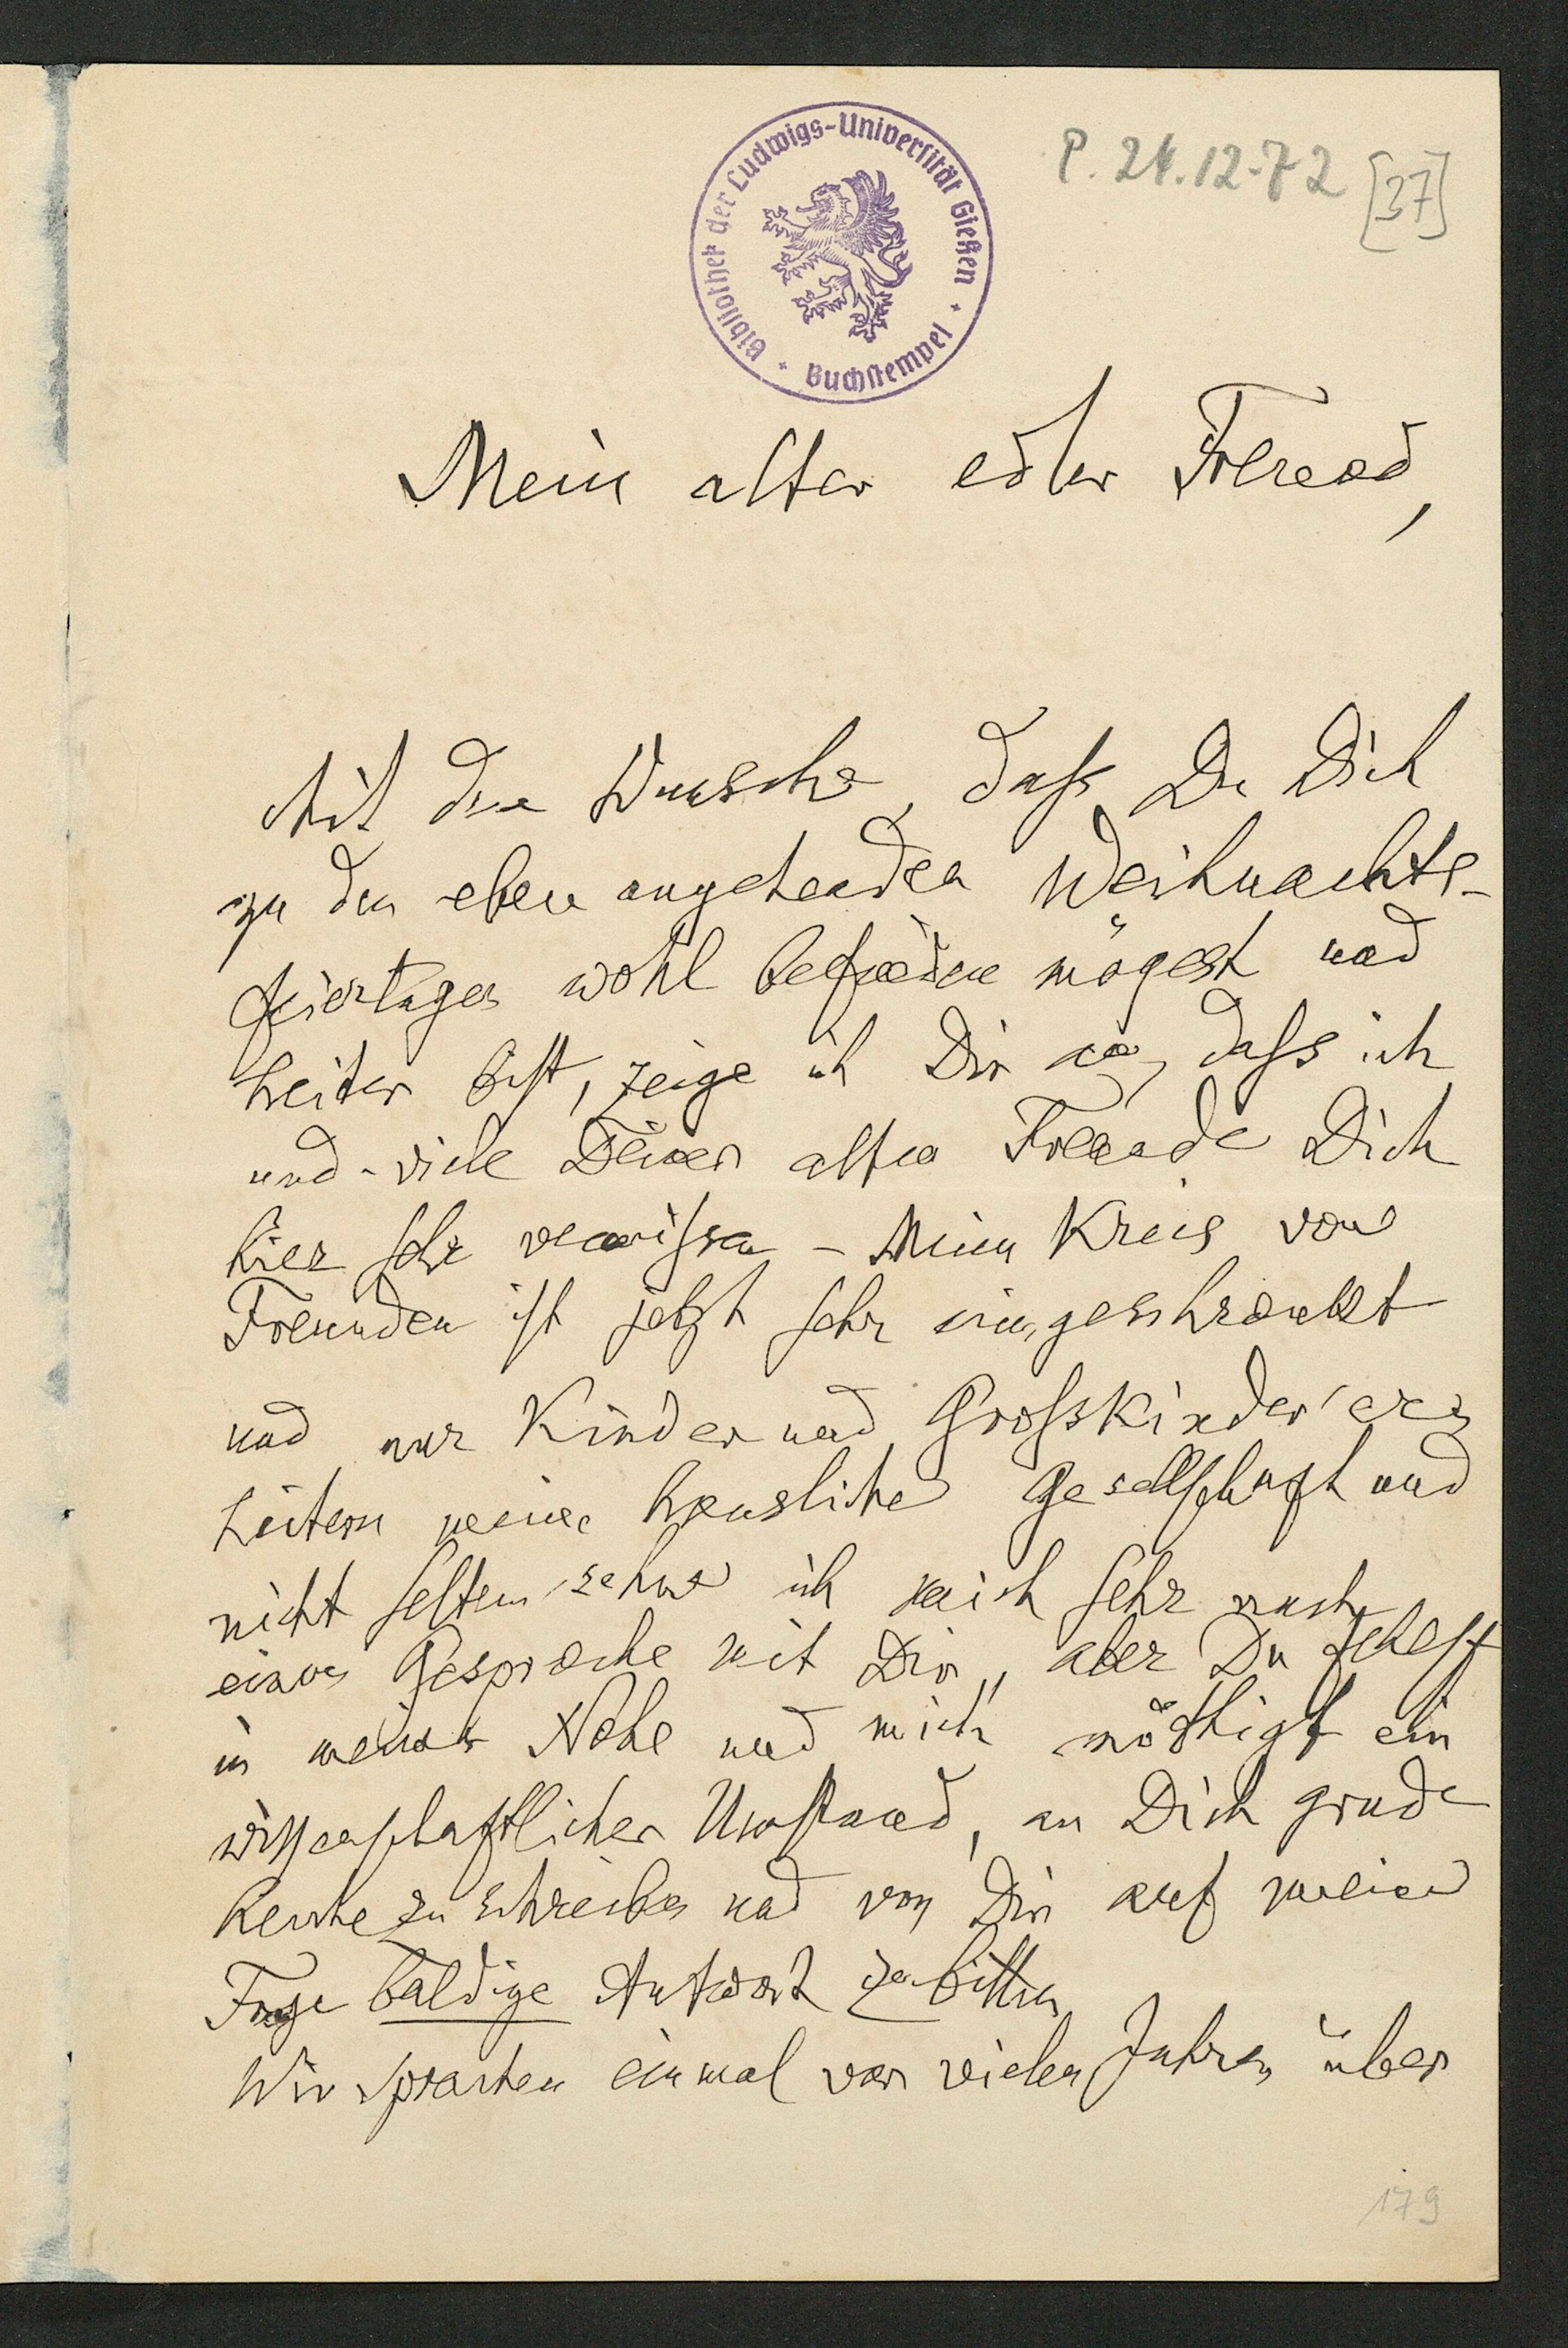 Bibliothek der Ludwigs-Universität Gießen
Buchstempel
P. 24.12.72 [37]
Mein alter edler Freund,
Mit dem Wunsche, daß Du Dich
zu den eben angehenden Weihnachts-
feiertagen wohl befinden mögest und
heiter bist, zeige ich Dir an, daß ich
und viele Deiner alten Freunde Dich
hier sehr vermissen – Mein Kreis von
Freunden ist jetzt sehr eingeschränkt
und nur Kinder und Großkinder er
heitern meine häusliche Gesellschaft und
nicht selten sehne ich mich sehr nach
einem Gespräche mit Dir, aber Du fehlst
in meiner Nähe und mich nöthigt ein
wissenschaftlicher Umstand, an Dich grade
heute zu schreiben und von Dir auf meine
Frage baldige Antwort zu bitten
Wir sprachen einmal vor vielen Jahren über
179